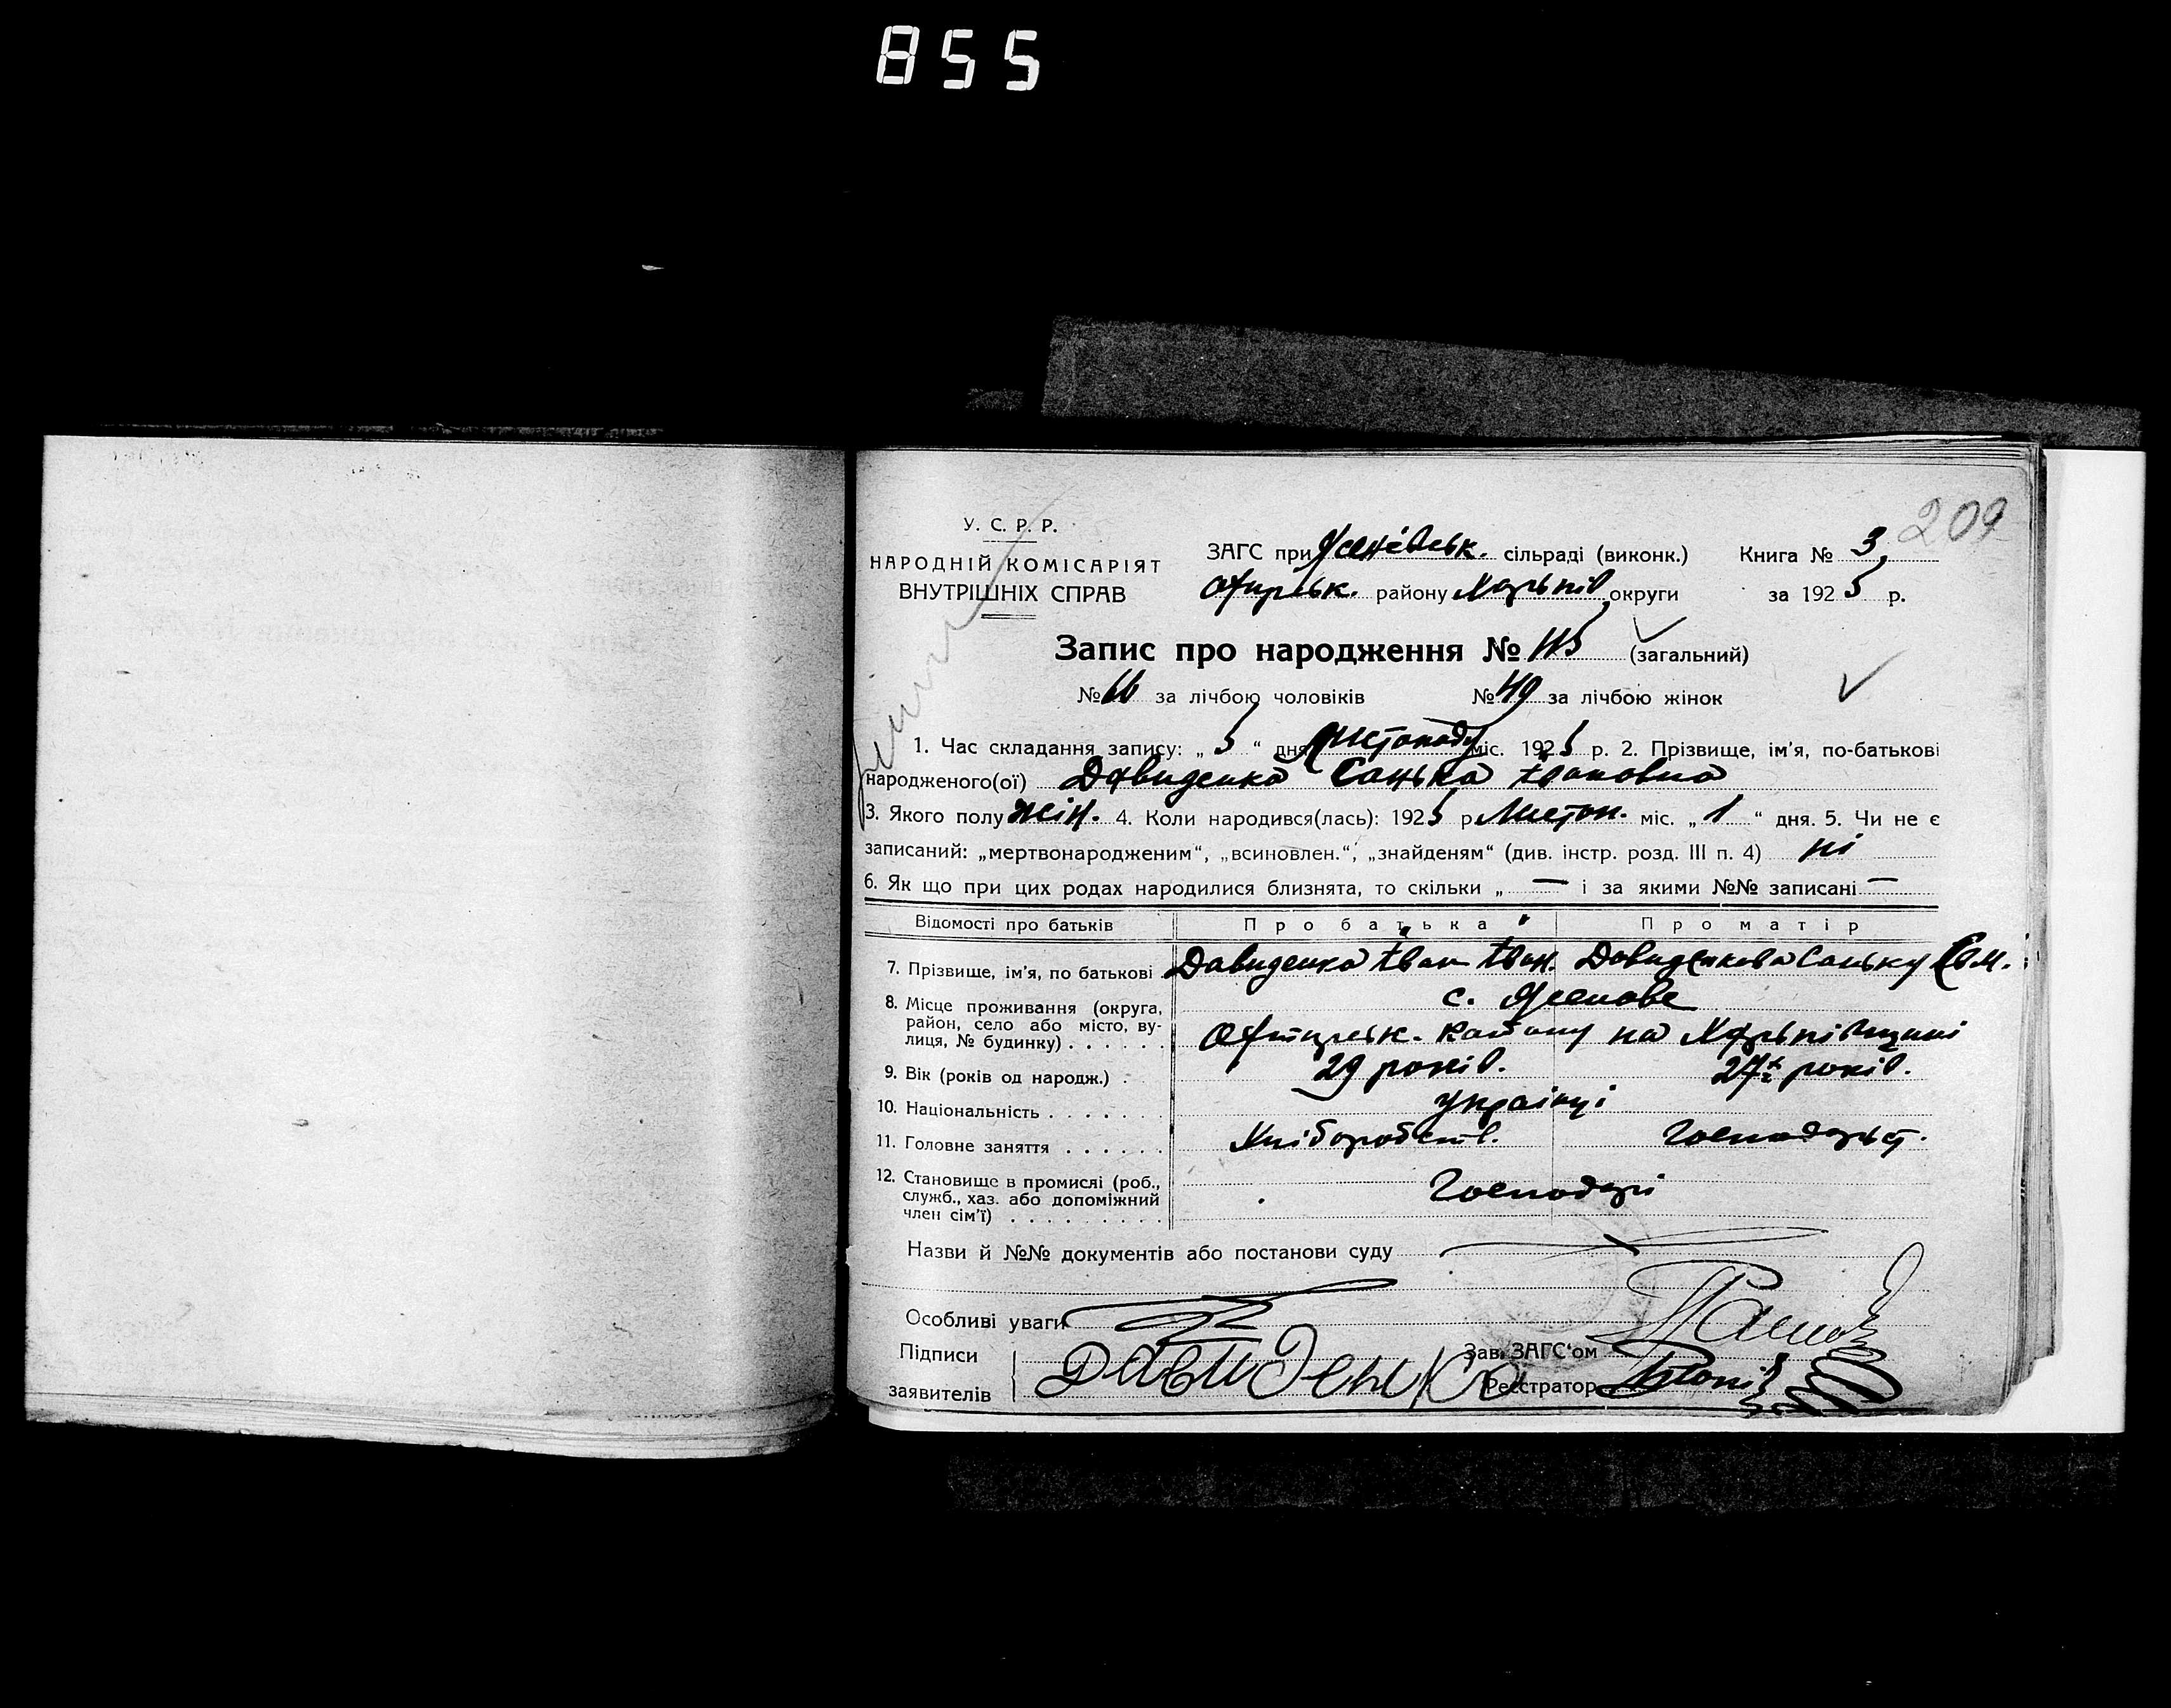 855
209
У. С. Р. Р.
НАРОДНІЙ КОМІСАРІЯТ
ВНУТРІШНІХ СПРАВ
ЗАГС при Ясенівськ. сільраді (виконк.) Книга № 3
Охтирськ. району Харьків округи за 1925 р.
Запис про народження № 115 (загальний)
№ 66 за лічбою чоловіків № 49 за лічбою жінок
1. Час складання запису: „ 5 “ дня Листопаду міс. 1925 р. 2. Прізвище, ім'я, по-батькові
народженого(ої) Давиденко Санька Івановна
3. Якого полу жін. 4. Коли народився(лась): 1925 р. Листоп. міс. „ 1 “ дня. 5. Чи не є
записаний: „мертвонародженим“, „всиновлен.“, „знайденям“ (див. інстр. розд. III п. 4) ні
6. Як що при цих родах народилися близнята, то скільки „ — і за якими №№ записані —
Відомості про батьків Про батька Про матір
7. Прізвище, ім'я, по батькові Давиденко Іван Іван. Давиденкова Саньку
8. Місце проживання (округа, район, село або місто, вулиця, № будинку) . . . . . . с. Ясенове
Охтирськ. району на Харьківщині
9. Вік (років од народж.) . 29 років. 27½ років.
10. Національність . . . . . . . українці
11. Головне заняття . . . . . . Хліборобств. Господарст.
12. Становище в промислі (роб., служб., хаз. або допоміжний член сім'ї) . . . . . . . . . Господарі
Назви й №№ документів або постанови суду
Особливі уваги
Підписи
заявителів Давиденко
Зав. ЗАГС'ом
Реєстратор